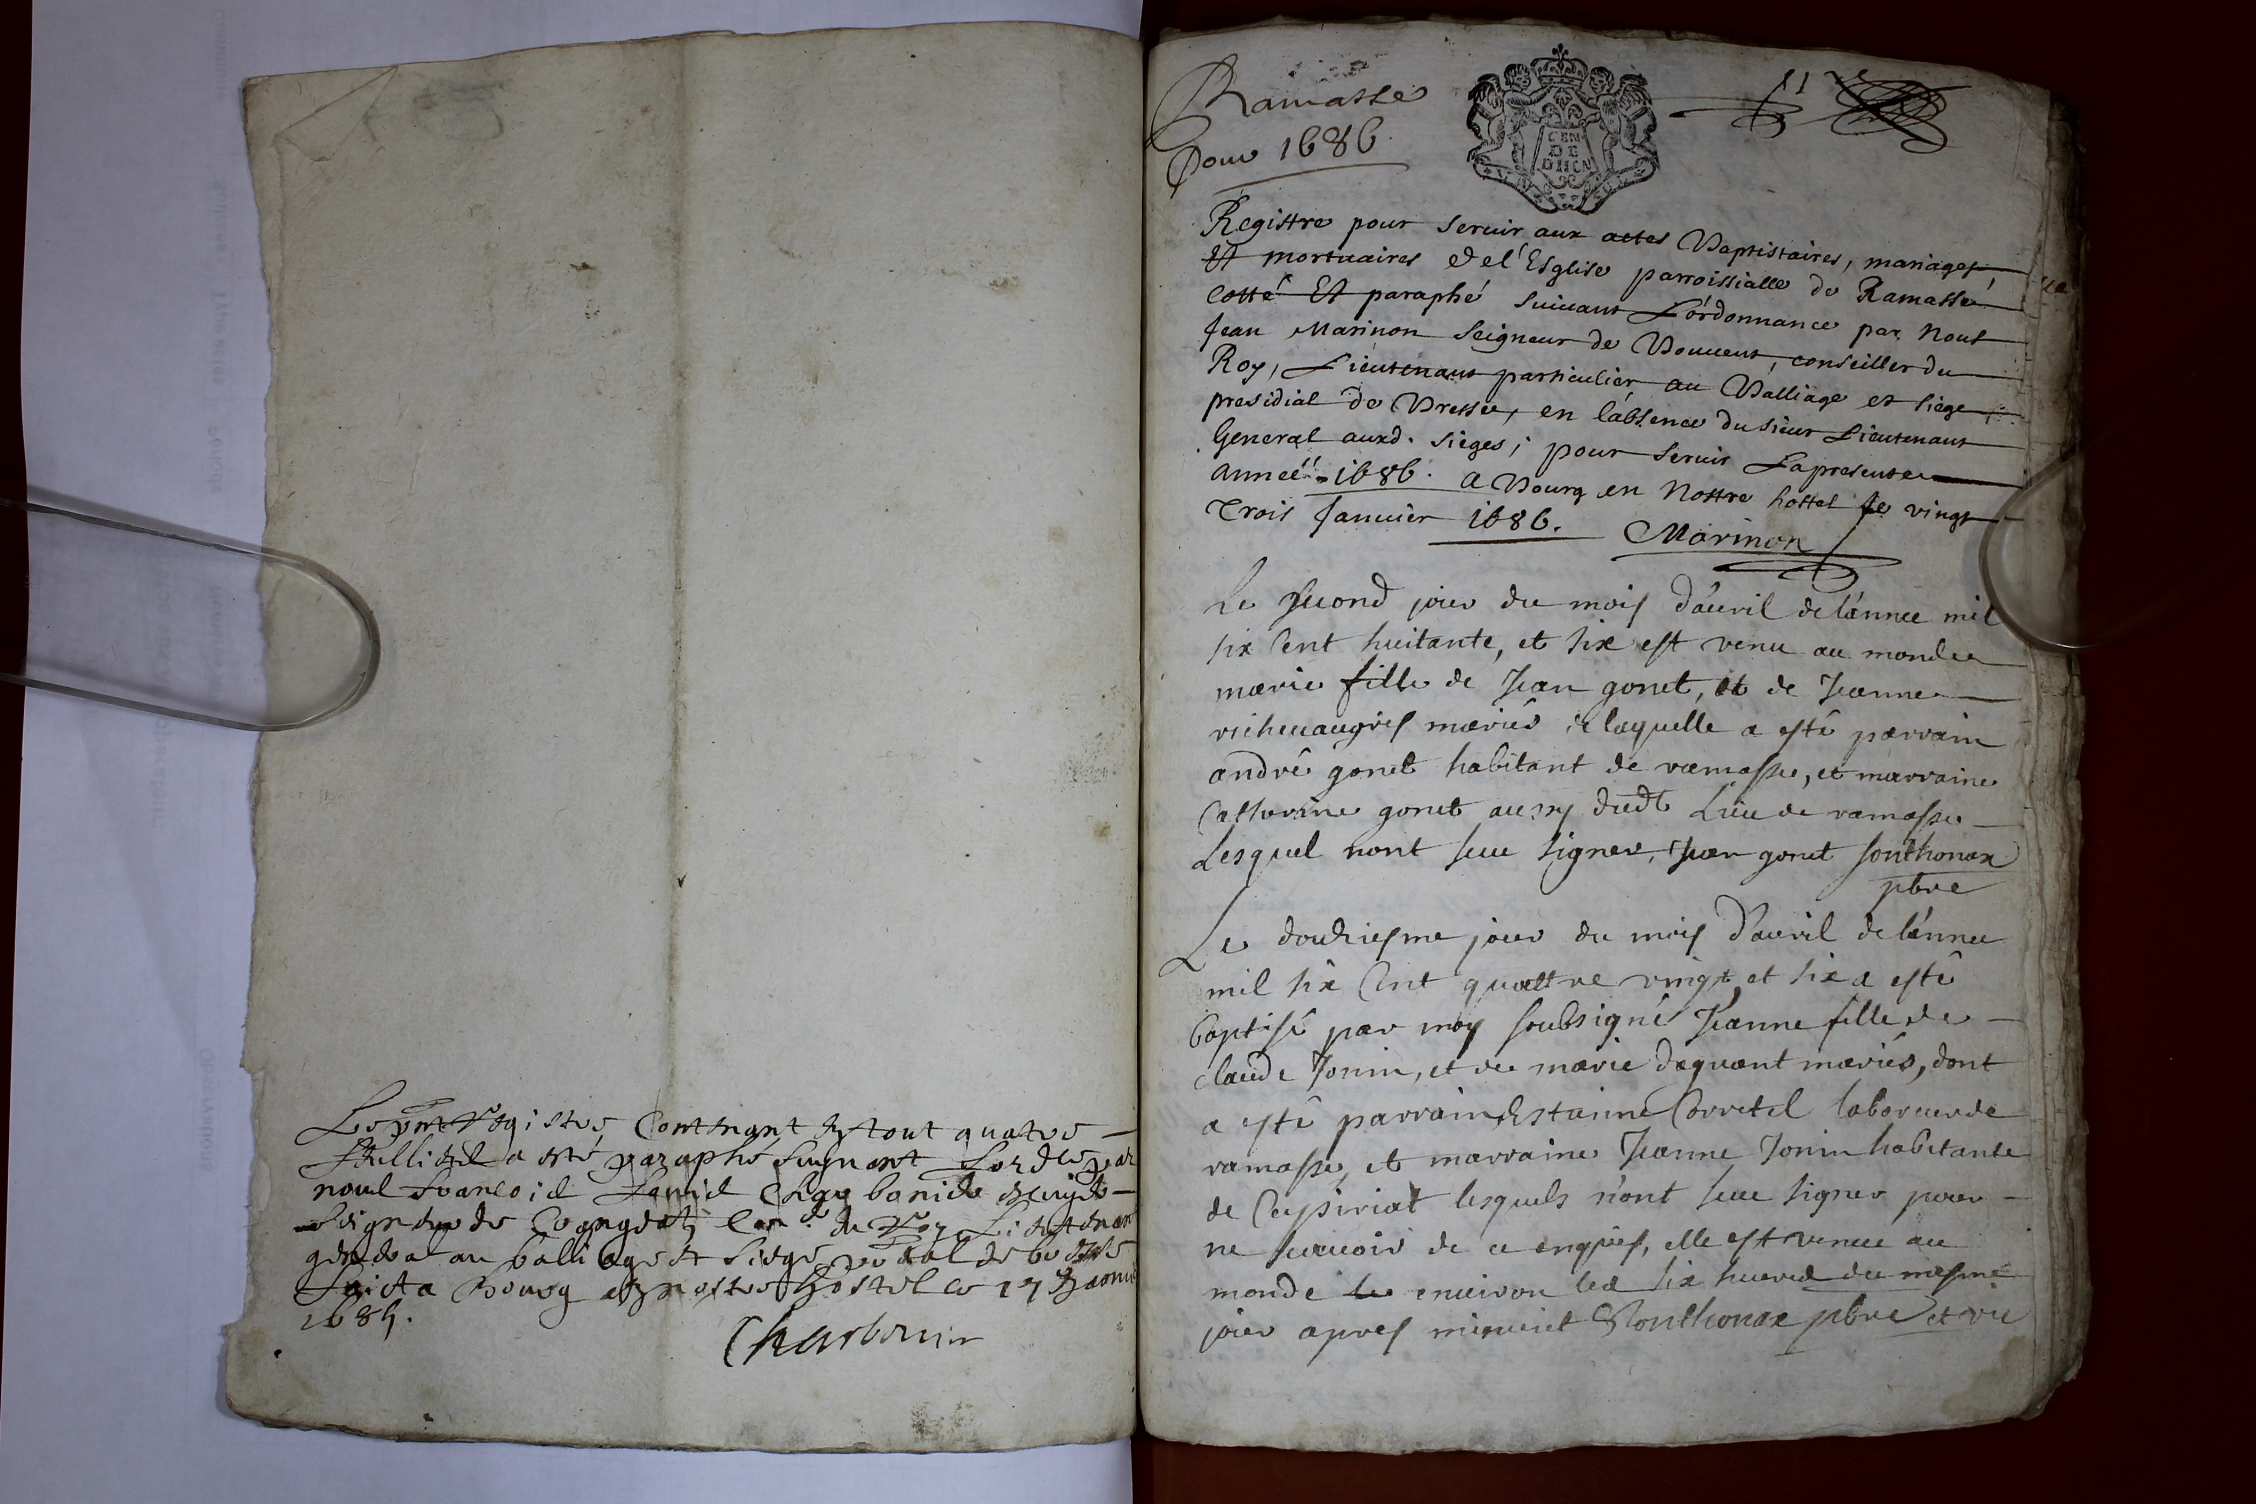 Le pnt Registre Contenant en tout quatre
feullietz a esté paraphé suyuant Lordce par
nous francois
Seigneur de du Roy Lieutenant
general au balliage et siege pndal de bresse
faict a Bourg en nostre hostel le 17 Januier
1685.
Charbonnier
Ramasse
Pour 1686
CEN
DE
DIION
11
Registre pour seruir aux actes Baptistaires, mariages
Et mortuaires de l'Esglise parroissialle de Ramasse
Cotté Et paraphé suiuant L'ordonnance par Nous
Jean Marinon seigneur de Bouuens, conseiller du
Roy, Lieutenant particulier au Balliage et siege
presidial de Bresse, en l'absence du sieur Lieutenant
General auxd. sieges; pour seruir La presente
année 1686. A Bourg en Nostre hostel Le vingt
Trois Januier 1686. Marinon
Le second jour du mois d'auril de l'annee mil
six Cent huitante, et six est venu au monde
marie fille de Jean gonet, et de Jeanne
mariés de laquelle a esté parrain
andré gonet habitant de ramasse, et marraine
Catherine gonet aussy dudt Lieu de ramasse
Lesquel nont seu signer, Jean gonet sonthonax
pbre
Le douziesme jour du mois d'auril de l'annee
mil six Cent quattre vingt et six a esté
baptisé par moy soubsigné Jeanne fille de
claude Jonin, et de marie daquant mariés, dont
a esté parrain Estainne Corretel laboreur de
ramasse, et marraine Jeanne Jonin habitante
de Ceysiriat lesquels n'ont seu signer pour
ne scauoir de ce enquis, elle est venue au
monde le enuiron les six heures du mesme
jour apres minuict Sonthonax pbre et vic